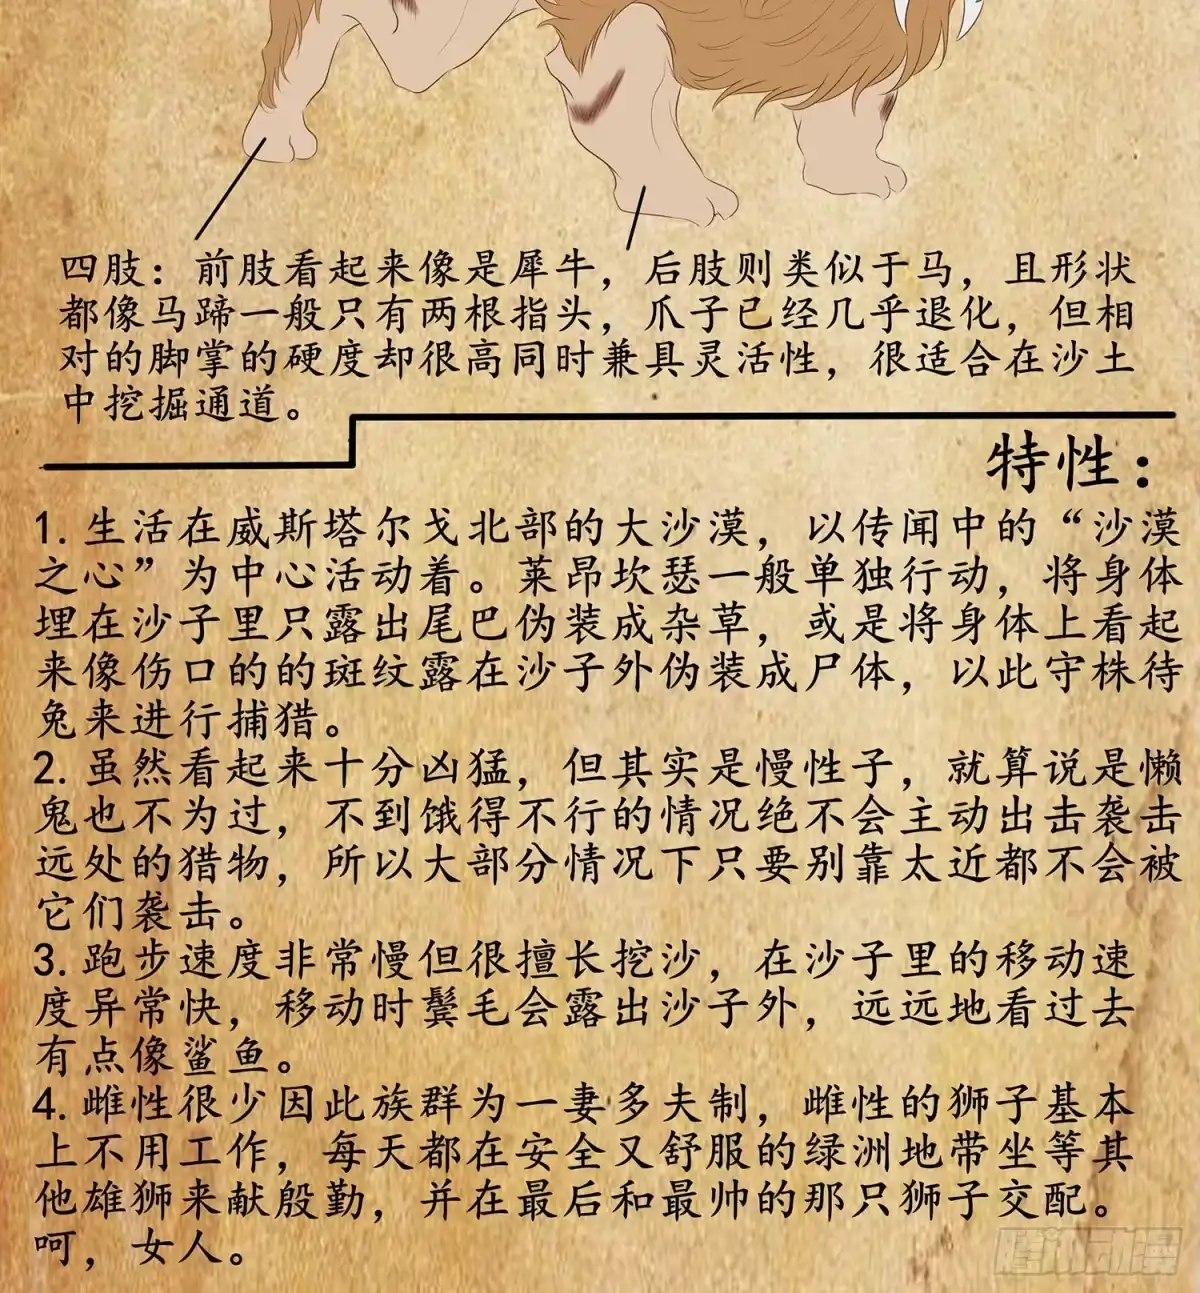 四肢：前肢看起来像是犀牛，后肢则类似于马，且形状
都像马蹄一般只有两根指头，爪子已经几乎退化，但相
对的脚掌的硬度却很高同时兼具灵活性，很适合在沙土
中挖掘通道。
特性：
1. 生活在威斯塔尔戈北部的大沙漠，以传闻中的“沙漠
之心”为中心活动着。莱昂坎瑟一般单独行动，将身体
埋在沙子里只露出尾巴伪装成杂草，或是将身体上看起
来像伤口的的斑纹露在沙子外伪装成尸体，以此守株待
兔来进行捕猎。
2. 虽然看起来十分凶猛，但其实是慢性子，就算说是懒
鬼也不为过，不到饿得不行的情况绝不会主动出击袭击
远处的猎物，所以大部分情况下只要别靠太近都不会被
它们袭击。
3. 跑步速度非常慢但很擅长挖沙，在沙子里的移动速
度异常快，移动时鬓毛会露出沙子外，远远地看过去
有点像鲨鱼。
4. 雌性很少因此族群为一妻多夫制，雌性的狮子基本
上不用工作，每天都在安全又舒服的绿洲地带坐等其
他雄狮来献殷勤，并在最后和最帅的那只狮子交配。
呵，女人。
腾讯动漫